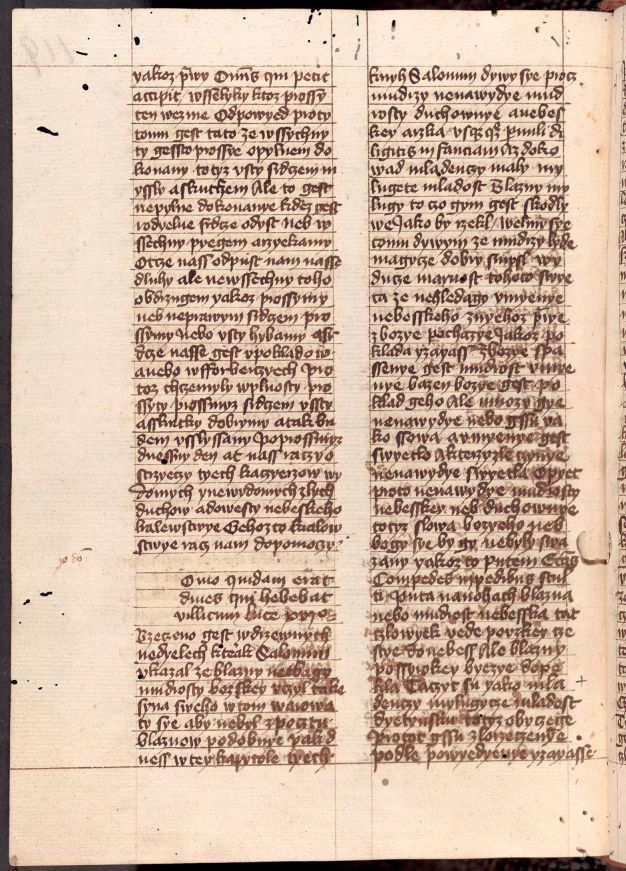 yakoz prwy Omnis qui petit
accipit wsseliky ktoz prossy
ten wezme Odpowyed proty
tomu gest tato ze wssychny
ty gessto prossye opylnem do
konany totyz vsty srdczem w
yssly a skutkem Ale to gest
neplne dokonanye kdez gest
rodyelne srdcze odyst neb w
ssechny pryegem arzyekamy
Otcze nass odpust nam nasse
dluhy ale newssechny toho
obdrzugem yakoz prossymy
neb neprawym srdczem pro
ssymy Nebo vsty hybamy a sr
dcze nasse gest vpokladow
anebo wfforberczych Pro
toz chczemyly wplnosty pro
ssyty prossmyz srdczem vssty
a sskutky dobrymy a tak bu
dem vsslyssany Poprossmyz
duessny den at nass raczy o
strzyeczy tyech kaczyerzow wy
domych ynewydomych zlych
duchow a dowesty nebeskeho
kralewstwye Gehozto kralow
stwye racz nam dopomoczy
Omo quidam erat
diues qui habebat
villicum luce xvi
Rzeczeno gest w drzewnych
nedyelech kterak Salomun
vkazal ze blazny nedbagy
mudrosty bozskey vczyl take
syna sweho w tom warowa
ty sye aby nebyl z pocztu
blaznow podobnye yakd
ness w tey kapytole tyech
knyh Salomun dywy sye procz
mudrzy nenawydye mud
rosty duchownye a nebes
key arzka vsquequo paruuli di
ligitis infanciam Az doko
wad mladenczy maly my
lugete mladost Blazny my
lugy to czo gym gest skodly
we Jako by rzekl welmy sye
tomu dywym ze mudrzy lyde
magycze dobry smysl wy
ducze marnost tohoto swye
ta ze nehledagy vmyenye
nebesskeho znyehoz prwe
zbozye pochazye Jakoz po
klada yzayass Zbozye spa
ssenye gest mudrost vmye
nye bazen bozye gest po
klad geho Ale mnozy gye
nenawydye nebo gssu ya
ko ssowa a vmyenye gest
swyetlo Akterzyz le czynye
nenawydye swyetla Opyet
proto nenawydye mudrosty
nebesskey neb duchownye
totyz slowa bozyeho neb
bogy sye by gy nebyly swa
zany yakoz to putem Eccles
Compedes in pedibus stul
ti Puta na nohach blazna
nebo mudrost nebesska tak
czlowyek wede powzkey cze
stye do nebess Ale blazny
possyrokey byezye do pe
kla Taczyt su yako mla
denczy mylugycze mladost
dyetynsku totyz obyczege
Protoz gssu zlorzeczenye
podle powyedyenye yzayasse